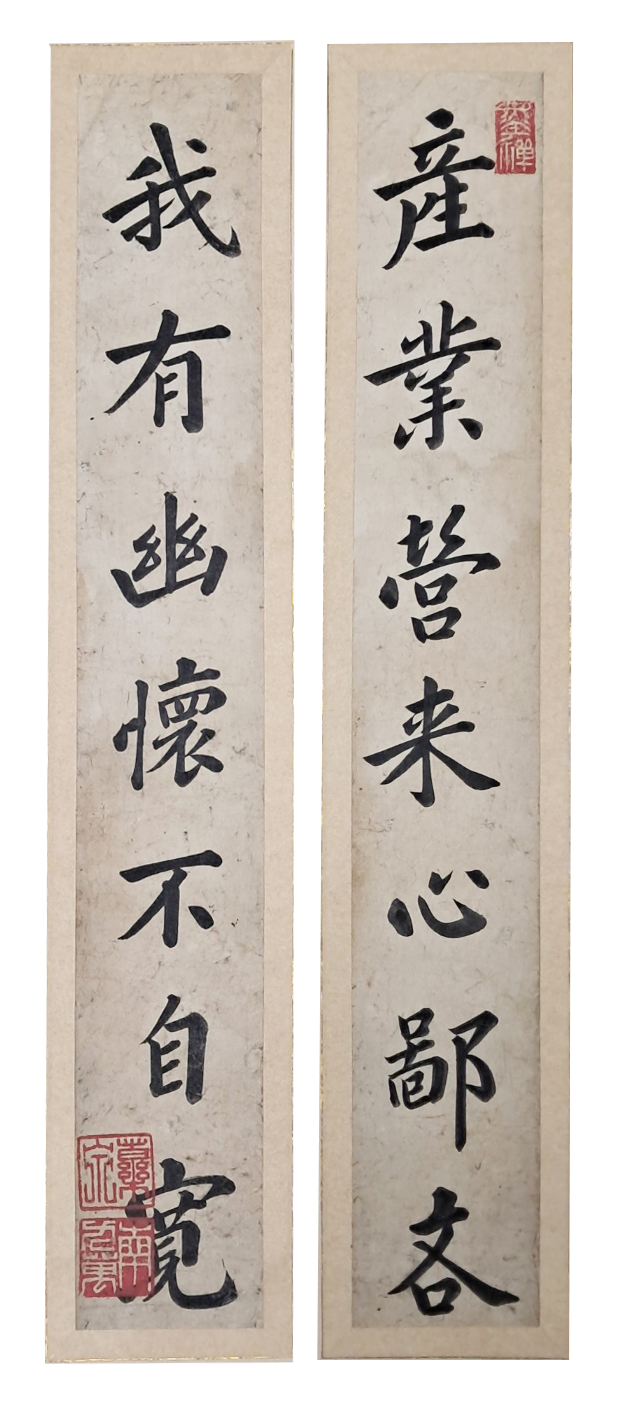 産業營来心鄙吝
我有幽懷不自寬